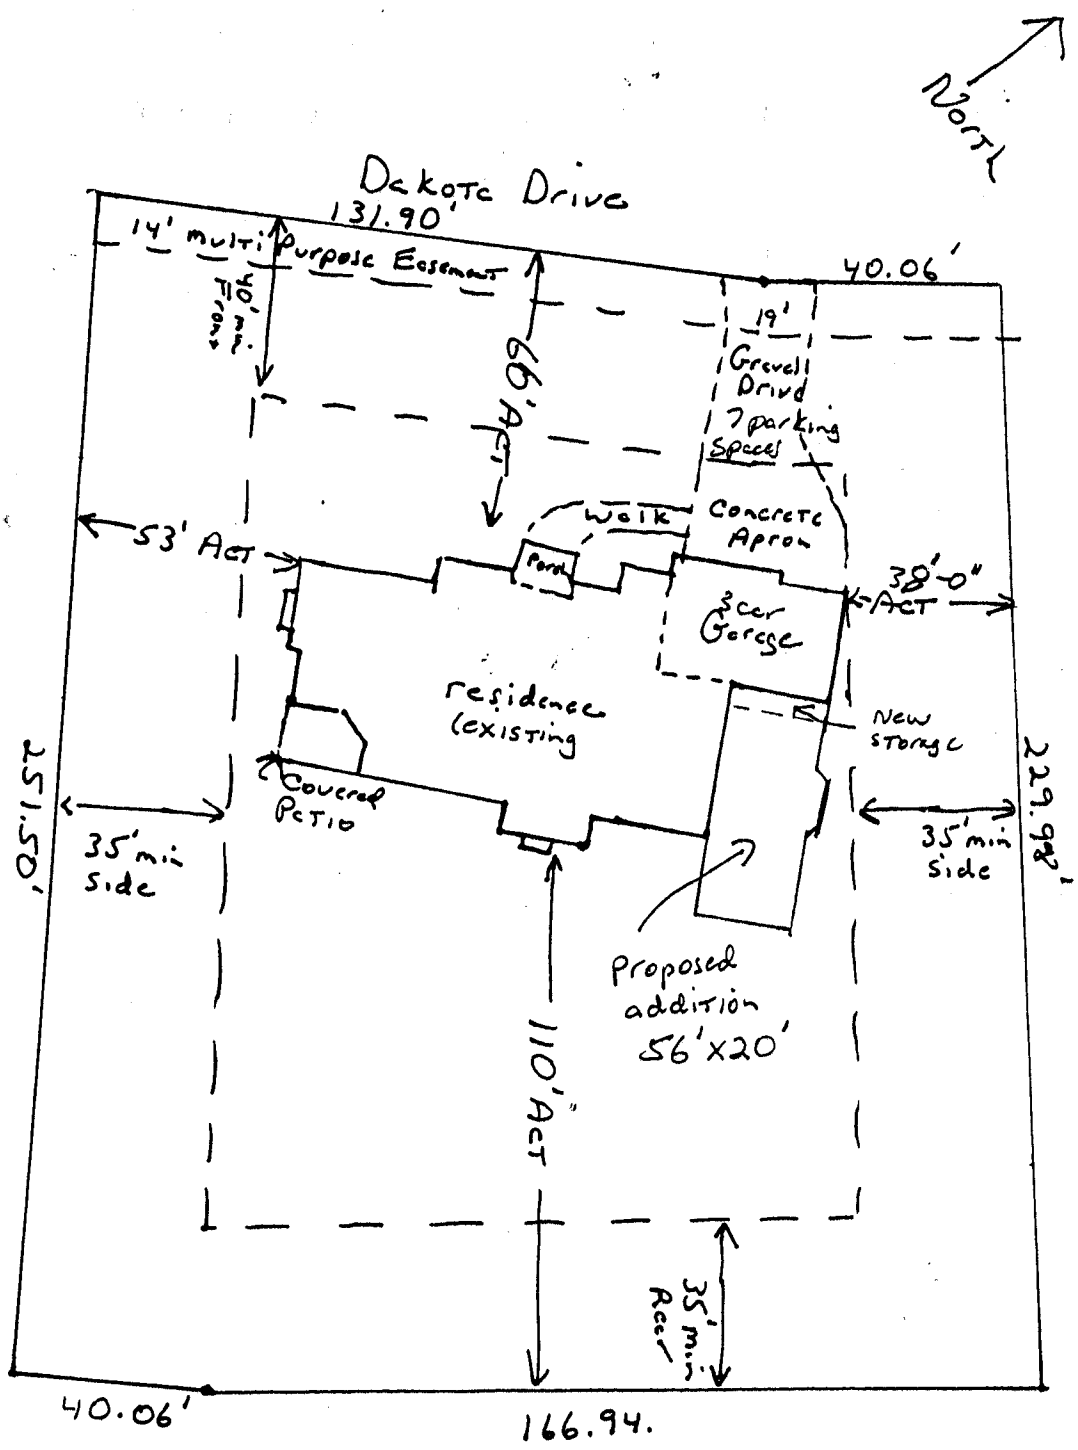 North
Dakota Drive
131.90'
40.06'
14' multi Purpose Easement
40' min
Front
66' ACT
19'
Gravell
Drive
7 parking
Spaces
Walk
Concrete
Apron
Porch
53' ACT
38'-0"
ACT
3 car
Garage
residence
(existing
New
Storage
Covered
Patio
251.50'
229.98'
35' min
side
35' min
side
Proposed
addition
56'x20'
110' ACT
35' min
Rear
40.06'
166.94.